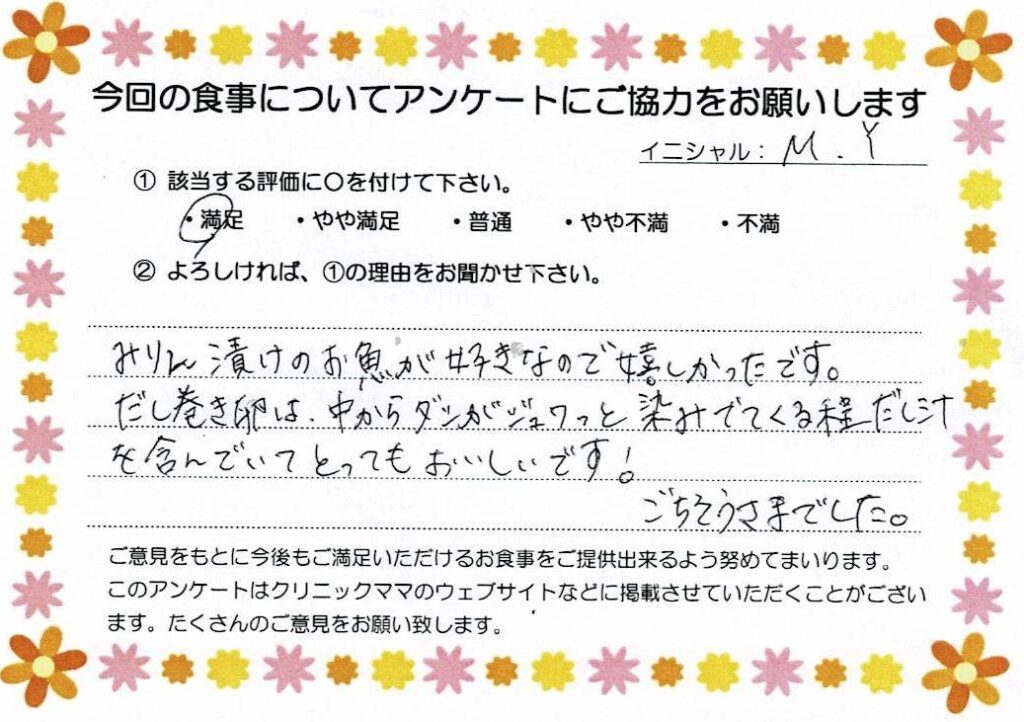 今回の食事についてアンケートにご協力をお願いします
イニシャル： M.Y
① 該当する評価に〇を付けて下さい。
・満足 ・やや満足 ・普通 ・やや不満 ・不満
② よろしければ、①の理由をお聞かせ下さい。
みりん漬けのお魚が好きなので嬉しかったです。
だし巻き卵は、中からダシがジュワっと染みでてくる程だし汁
を含んでいてとってもおいしいです！
ごちそうさまでした。
ご意見をもとに今後もご満足いただけるお食事をご提供出来るよう努めてまいります。
このアンケートはクリニックママのウェブサイトなどに掲載させていただくことがござい
ます。たくさんのご意見をお願い致します。